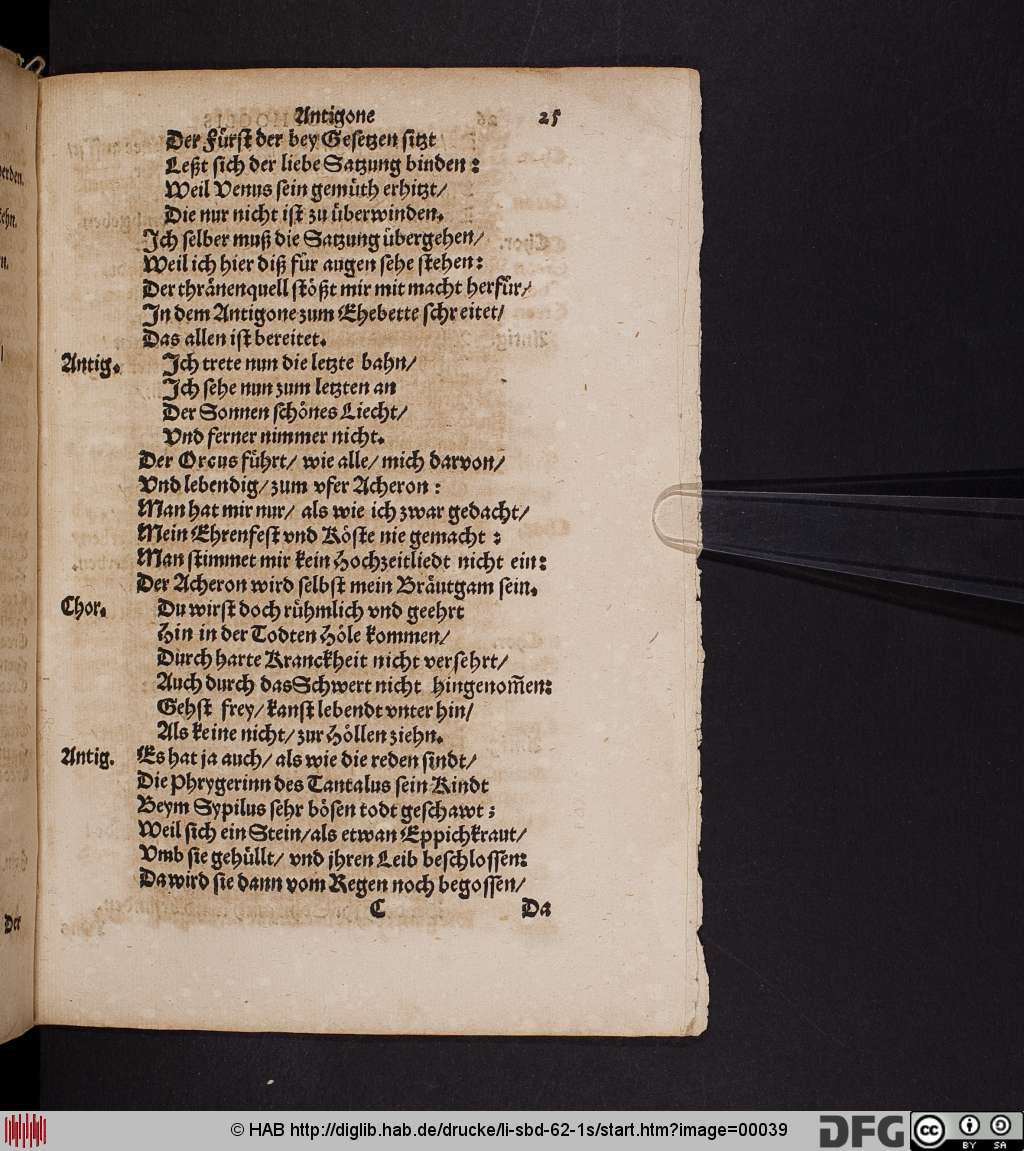 Antigone 25
Der Fürst der bey Gesetzen sitzt
Leßt sich der liebe Satzung binden:
Weil Venus sein gemüth erhitzt/
Die nur nicht ist zu überwinden.
Ich selber muß die Satzung übergehen/
Weil ich hier diß für augen sehe stehen:
Der thränenquell stößt mir mit macht herfür/
In dem Antigone zum Ehebette schreitet/
Das allen ist bereitet.
Antig. Ich trete nun die letzte bahn/
Ich sehe nun zum letzten an
Der Sonnen schönes Liecht/
Vnd ferner nimmer nicht.
Der Orcus führt/ wie alle/ mich darvon/
Vnd lebendig/ zum vfer Acheron:
Man hat mir nur/ als wie ich zwar gedacht/
Mein Ehrenfest vnd Köste nie gemacht:
Man stimmet mir kein Hochzeitliedt nicht ein:
Der Acheron wird selbst mein Bräutgam sein.
Chor. Du wirst doch rühmlich vnd geehrt
Hin in der Todten Höle kommen/
Durch harte Kranckheit nicht versehrt/
Auch durch das Schwert nicht hingenom̃en:
Gehst frey/ kanst lebendt vnter hin/
Als keine nicht/ zur Höllen ziehn.
Antig. Es hat ja auch/ als wie die reden sindt/
Die Phrygerinn des Tantalus sein Kindt
Beym Sypilus sehr bösen todt geschawt;
Weil sich ein Stein/als etwan Eppichkraut/
Vmb sie gehüllt/ vnd jhren Leib beschlossen:
Da wird sie dann vom Regen noch begossen/
C Da
werden.
Der
© HAB http://diglib.hab.de/drucke/li-sbd-62-1s/start.htm?image=00039
DFG
cc
BY SA